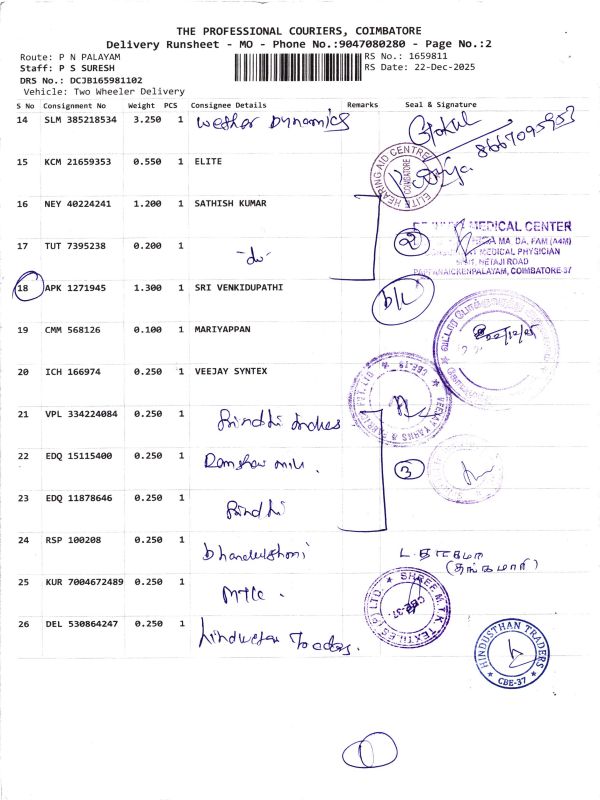 THE PROFESSIONAL COURIERS, COIMBATORE
Delivery Runsheet - MO - Phone No.:9047080280 - Page No.:2
Route: P N PALAYAM
RS No.: 1659811
Staff: P S SURESH
RS Date: 22-Dec-2025
DRS No.: DCJB165981102
Vehicle: Two Wheeler Delivery
S No Consignment No Weight PCS Consignee Details Remarks Seal & Signature
14 SLM 385218534 3.250 1 Wether Dynamics Gokul
8667095953
15 KCM 21659353 0.550 1 ELITE
ELITE HEARING AID CENTRE
COIMBATORE
16 NEY 40224241 1.200 1 SATHISH KUMAR
MEDICAL CENTER
MA. DA, FAM,(A4M)
MEDICAL PHYSICIAN
NETAJI ROAD
PAPPANAICKENPALAYAM, COIMBATORE-37
17 TUT 7395238 0.200 1 -do- 2
18 APK 1271945 1.300 1 SRI VENKIDUPATHI b/L
19 CMM 568126 0.100 1 MARIYAPPAN
22/12/25
20 ICH 166974 0.250 1 VEEJAY SYNTEX
VEEJAY YARNS & FABRICS PVT LTD
CBE-19
21 VPL 334224084 0.250 1
22 EDQ 15115400 0.250 1 3
23 EDQ 11878646 0.250 1
24 RSP 100208 0.250 1
25 KUR 7004672489 0.250 1 MTK
SHREE M.T.K. TEXTILES (P) LTD.
CBE-37.
26 DEL 530864247 0.250 1 Hindusthan Traders.
HINDUSTHAN TRADERS
CBE-37
1